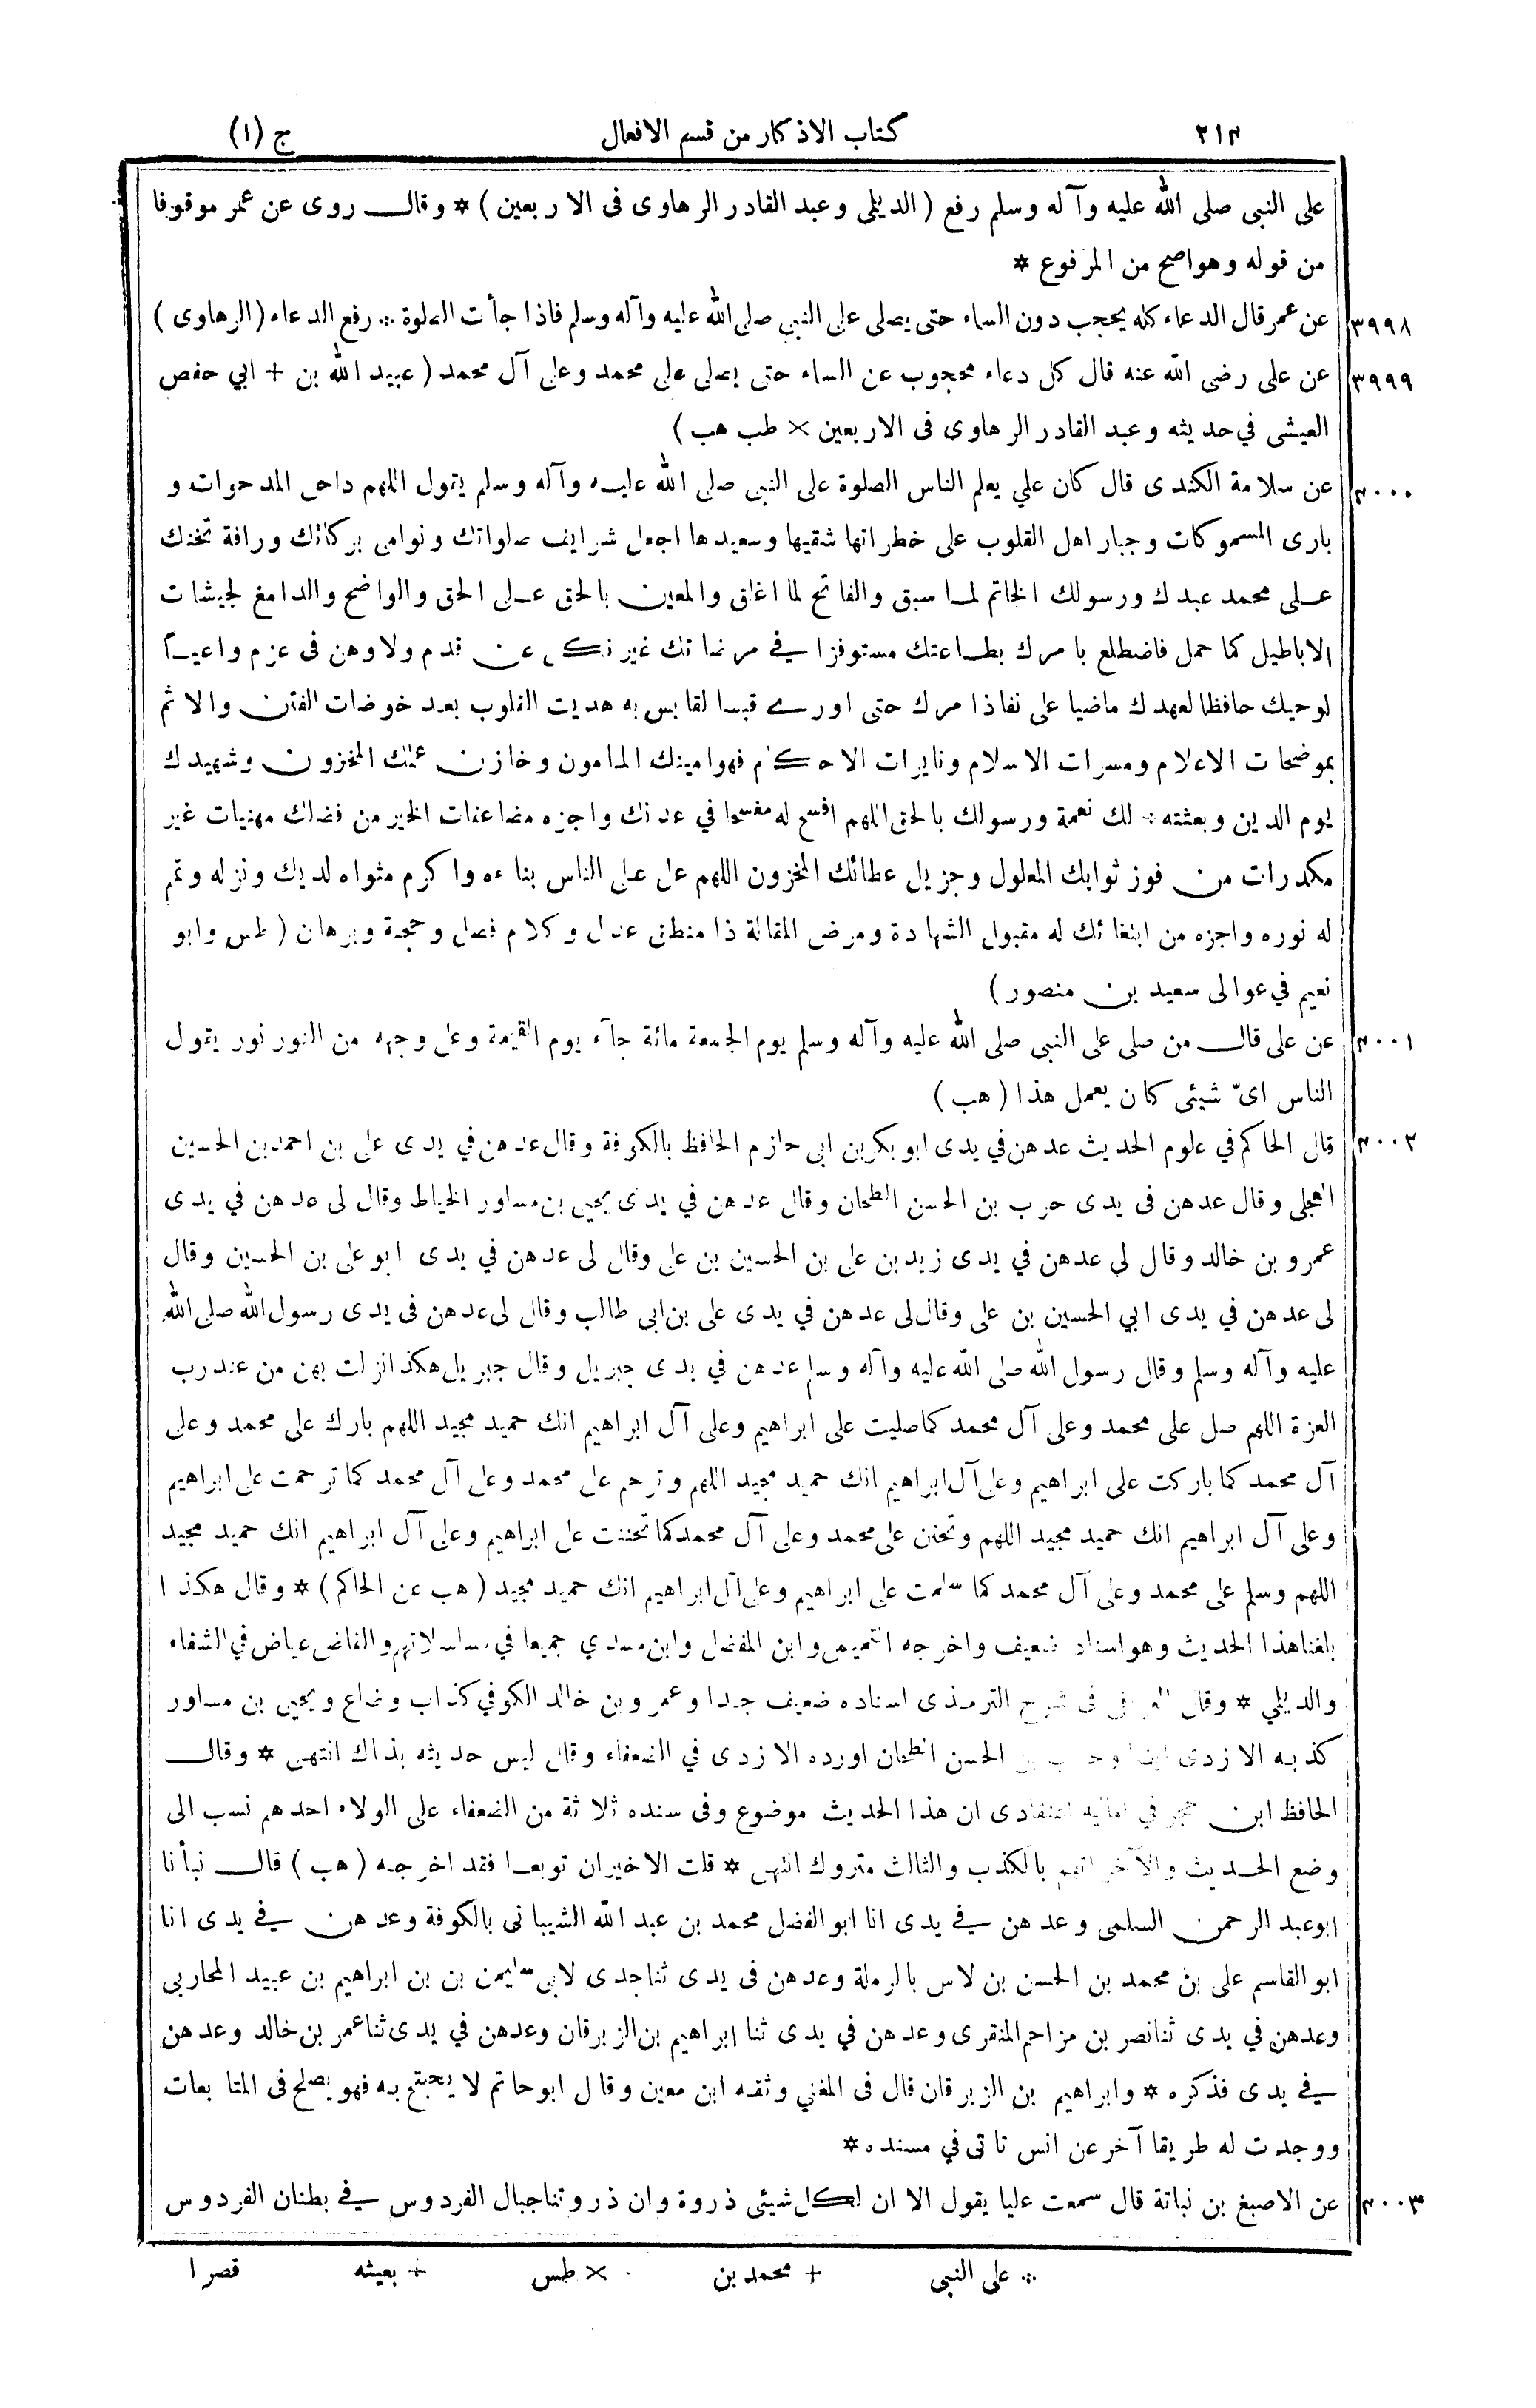 ٢١٤ كتاب الاذكار من قسم الافعال ج (١)
على النبى صلى الله عليه وآله وسلم رفع ( الديلمى وعبد القادر الرهاوى فى الاربعين ) * وقال روى عن عمر موقوفا
من قوله وهواصح من المرفوع *
٣٩٩٨ عن عمر قال الدعاء كله يحجب دون السماء حتى يصلى على النبى صلى الله عليه وآله وسلم فاذا جأت الصلوة ∴ رفع الدعاء (الرهاوى )
٣٩٩٩ عن على رضى الله عنه قال كل دعاء محجوب عن السماء حتى يصلى على محمد وعلى آل محمد ( عبيد الله بن + ابي حفص
العيشى في حديثه وعبد القادر الرهاوى فى الاربعين × طب هب )
٤٠٠٠ عن سلامة الكندى قال كان علي يعلم الناس الصلوة على النبى صلى الله عليه وآله وسلم يقول اللهم داحى المدحوات و
بارى المسموكات وجبار اهل القلوب على خطراتها شقيها وسعيدها اجعل شرايف صلواتك ونوامى بركاتك ورافة تحننك
على محمد عبدك ورسولك الخاتم لما سبق والفاتح لما اغلق والمعين بالحق على الحق والواضح والدامغ لجيشات
الاباطيل كما حمل فاضطلع بامرك بطاعتك مستوفزا في مرضاتك غير نكل عن قدم ولاوهن فى عزم واعيا
لوحيك حافظا لعهدك ماضيا على نفاذ امرك حتى اورى قبسا لقابس به هديت القلوب بعد خوضات الفتن والاثم
بموضحات الاعلام ومسرات الاسلام ونايرات الاحكام فهوامينك المامون وخازن علمك المخزون وشهيدك
يوم الدين وبعثته ∻ لك نعمة ورسولك بالحق اللهم افسح له مفسحا في عدنك واجزه مضاعفات الخير من فضلك مهنيات غير
مكدرات من فوز ثوابك المعلول وجزيل عطائك المخزون اللهم عل على الناس بناءه واكرم مثواه لديك ونزله وتمم
له نوره واجزه من ابتغائك له مقبول الشهادة ومرضى المقالة ذا منطق عدل وكلام فصل وحجة وبرهان ( طس وابو
نعيم في عوالى سعيد بن منصور )
٤٠٠١ عن على قال من صلى على النبى صلى الله عليه وآله وسلم يوم الجمعة مائة جآء يوم القيمة وعلى وجهه من النور نور يقول
الناس اىّ شيئى كان يعمل هذا ( هب )
٤٠٠٢ قال الحاكم في علوم الحديث عدهن في يدى ابو بكر بن ابى حازم الحافظ بالكوفة وقال عدهن في يدى على بن احمد بن الحسين
العجلى وقال عدهن فى يدى حرب بن الحسن الطحان وقال عدهن في يدى يحيى بن مساور الخياط وقال لى عدهن في يدى
عمرو بن خالد وقال لى عدهن في يدى زيد بن على بن الحسين بن على وقال لى عدهن في يدى ابو على بن الحسين وقال
لى عدهن في يدى ابي الحسين بن على وقال لى عدهن في يدى على بن ابى طالب وقال لى عدهن فى يدى رسول الله صلى الله
عليه وآله وسلم وقال رسول الله صلى الله عليه وآله وسلم عدهن في يدى جبريل وقال جبريل هكذا نزلت بهن من عند رب
العزة اللهم صل على محمد وعلى آل محمد كما صليت على ابراهيم وعلى آل ابراهيم انك حميد مجيد اللهم بارك على محمد وعلى
آل محمد كما باركت على ابراهيم وعلى آل ابراهيم انك حميد مجيد اللهم وترحم على محمد وعلى آل محمد كما ترحمت على ابراهيم
وعلى آل ابراهيم انك حميد مجيد اللهم وتحنن على محمد وعلى آل محمد كما تحننت على ابراهيم وعلى آل ابراهيم انك حميد مجيد
اللهم وسلم على محمد وعلى آل محمد كما سلمت على ابراهيم وعلى آل ابراهيم انك حميد مجيد ( هب عن الحاكم ) * وقال هكذا
بلغنا هذا الحديث وهو اسناد ضعيف واخرجه التميمى وابن المفضل وابن مسدي جميعا في مسلسلاتهم والقاضى عياض في الشفاء
والديلمي * وقال العراقى فى شرح الترمذى اسناده ضعيف جدا وعمرو بن خالد الكوفي كذاب وضاع ويحيى بن مساور
كذبه الازدى ايضا وحرب بن الحسن الطحان اورده الازدى في الضعفاء وقال ليس حديثه بذاك انتهى * وقال
الحافظ ابن حجر في اماليه اعتقادى ان هذا الحديث موضوع وفى سنده ثلاثة من الضعفاء على الولاء احدهم نسب الى
وضع الحديث والآخر اتهم بالكذب والثالث متروك انتهى * قلت الاخيران توبعا فقد اخرجه ( هب ) قال نبأنا
ابو عبد الرحمن السلمى وعدهن في يدى انا ابو الفضل محمد بن عبد الله الشيبانى بالكوفة وعدهن في يدى انا
ابو القاسم على بن محمد بن الحسن بن لاس بالرملة وعدهن فى يدى ثنا جدى لابى سليمن بن بن ابراهيم بن عبيد المحاربى
وعدهن في يدى ثنا نصر بن مزاحم المنقرى وعدهن في يدى ثنا ابراهيم بن الزبرقان وعدهن في يدى ثنا عمر بن خالد وعدهن
في يدى فذكره * وابراهيم بن الزبرقان قال فى المغني وثقه ابن معين وقال ابو حاتم لا يحبتج به فهو يصلح فى المتابعات
ووجدت له طريقا آخر عن انس تاتى في مسنده *
٤٠٠٣ عن الاصبغ بن نباتة قال سمعت عليا يقول الا ان لكل شيئى ذروة وان ذروتنا جبال الفردوس في بطنان الفردوس
∴ على النبى + محمد بن × طس ∻ بعيثه قصرا